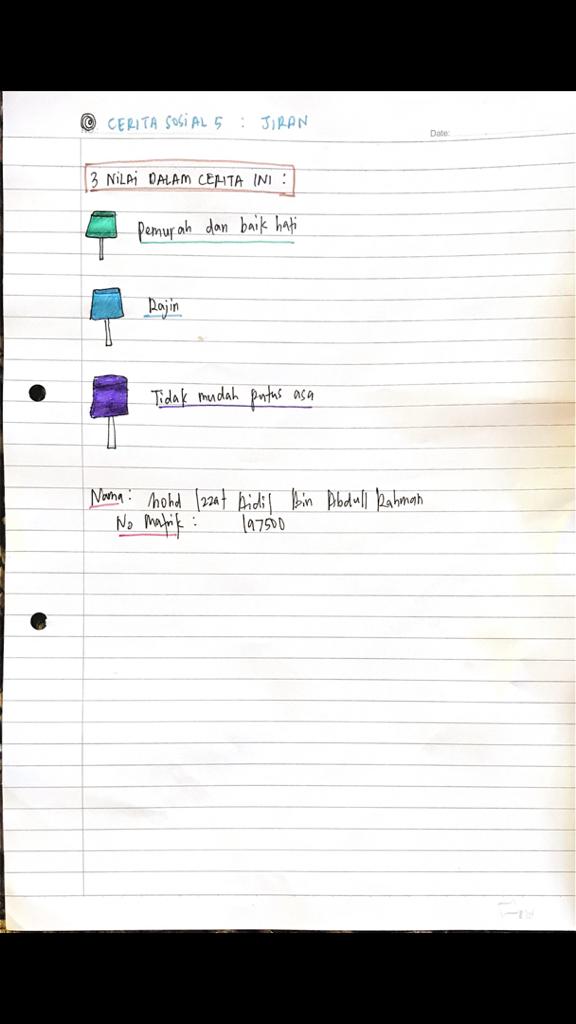 CERITA SOSIAL 5 : JIRAN
Date:
3 NILAI DALAM CERITA INI :
Pemurah dan baik hati
Rajin
Tidak mudah putus asa
Nama: Mohd Izzat Aidil Bin Abdull Rahman
No Matrik : 197500